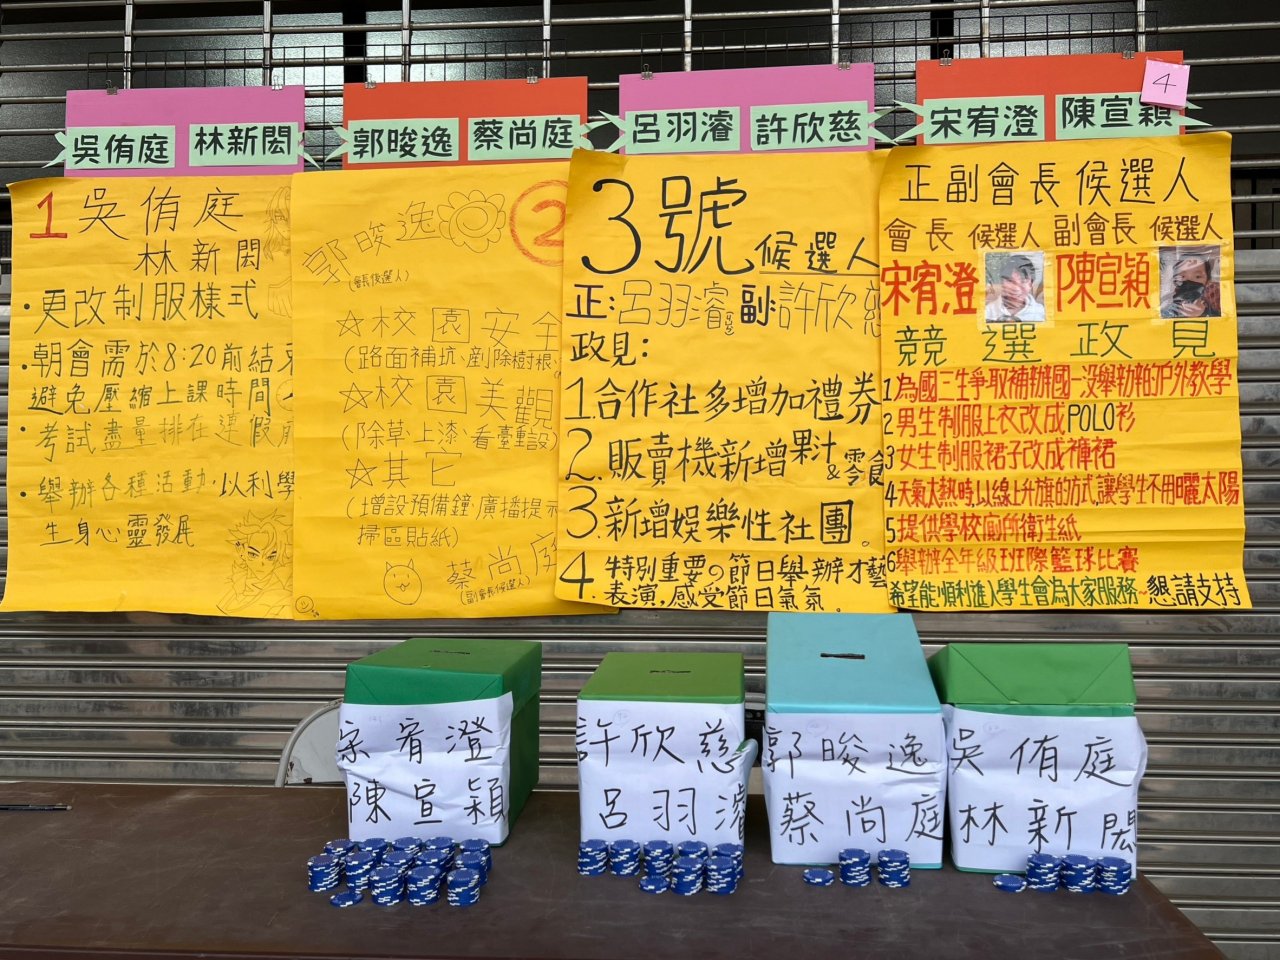 吳侑庭 林新閎
郭晙逸 蔡尚庭
呂羽濬 許欣慈
宋宥澄 陳宣穎
4
1 吳侑庭
林新閎
·更改制服樣式
·朝會需於8:20前結束
避免壓縮上課時間
·考試盡量排在連假前
·舉辦各種活動,以利學
生身心靈發展
②
郭晙逸
(會長候選人)
☆校園安全
(路面補坑、剷除樹根
☆校園美觀
(除草上漆、看臺重設)
☆其它
(增設預備鐘、廣播提示
掃區貼紙)
蔡尚庭
(副會長候選人)
3號候選人
正:呂羽濬 副:許欣慈
政見:
1.合作社多增加禮券
2.販賣機新增果汁&零食
3.新增娛樂性社團。
4.特別重要の節日舉辦才藝
表演,感受節日氣氛。
正副會長候選人
會長候選人 副會長候選人
宋宥澄 陳宣穎
競選政見
1為國三生爭取補辦國一沒舉辦的戶外教學
2男生制服上衣改成POLO衫
3女生制服裙子改成褲裙
4天氣太熱時,以線上升旗的方式,讓學生不用曬太陽
5提供學校廁所衛生紙
6舉辦全年級班際籃球比賽
希望能順利進入學生會為大家服務~懇請支持
宋宥澄
陳宣穎
許欣慈
呂羽濬
郭晙逸
蔡尚庭
吳侑庭
林新閎